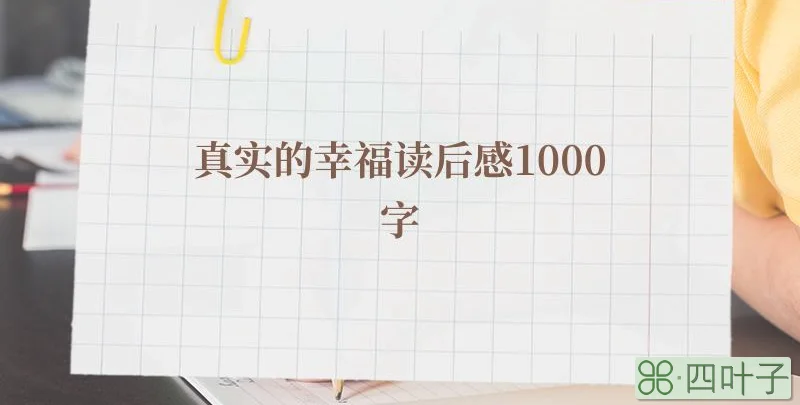 真实的幸福读后感1000
字
四叶子